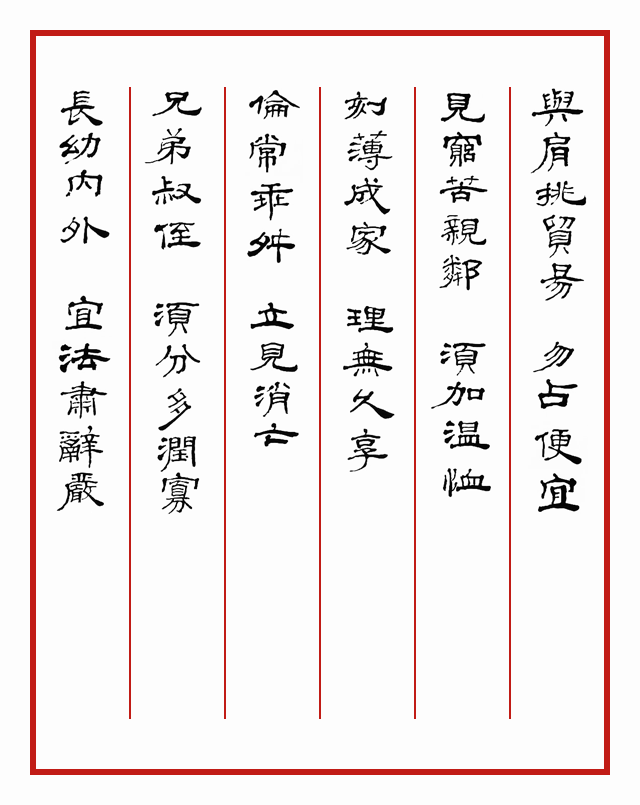 與肩挑貿易 勿占便宜
見窮苦親鄰 須加温恤
刻薄成家 理無久享
倫常乖舛 立見消亡
兄弟叔侄 須分多潤寡
長幼内外 宜法肅辭嚴